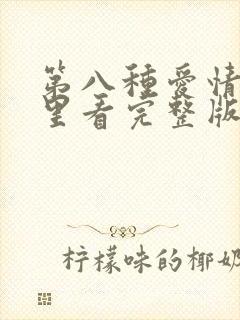 第八種愛情
里看完整版
柠檬味的椰奶